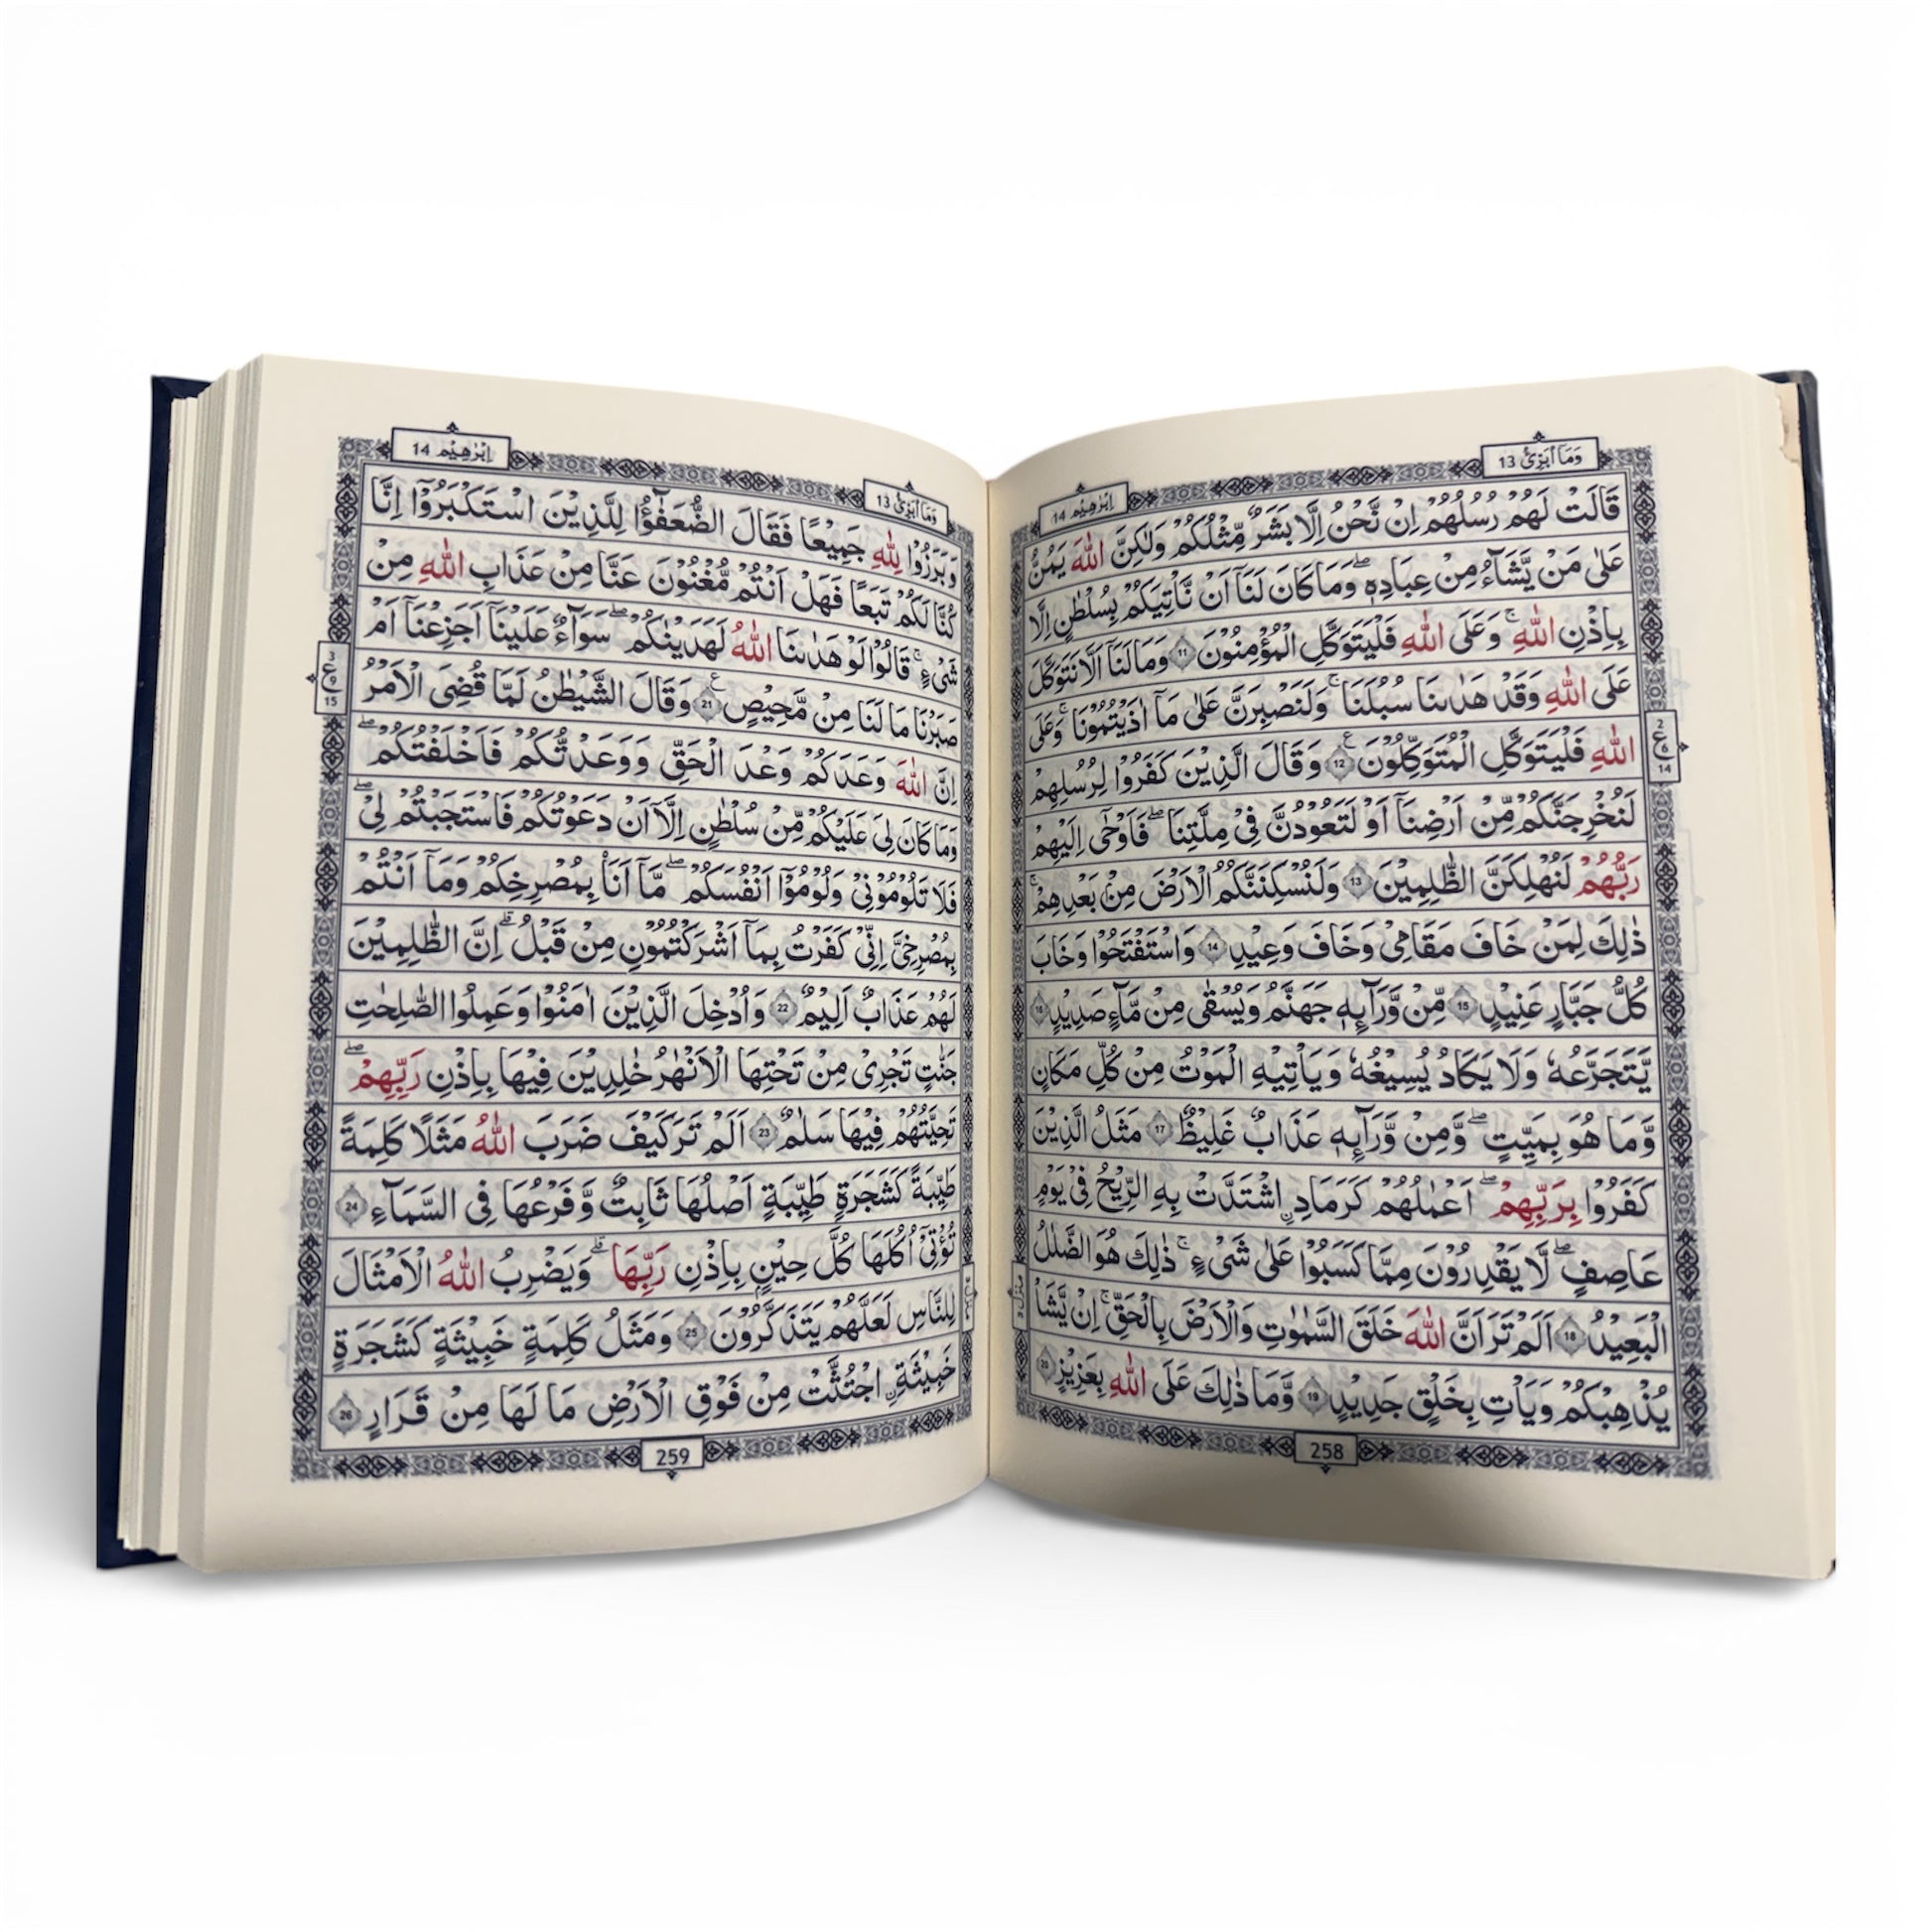 وَمَا أُبَرِّئُ 13
اِبْرٰهِيْم 14
قَالَتْ لَهُمْ رُسُلُهُمْ اِنْ نَّحْنُ اِلَّا بَشَرٌ مِّثْلُكُمْ وَلٰكِنَّ اللّٰهَ يَمُنُّ
عَلٰى مَنْ يَّشَآءُ مِنْ عِبَادِهٖ ؕ وَمَا كَانَ لَنَآ اَنْ نَّاْتِيَكُمْ بِسُلْطٰنٍ اِلَّا
بِاِذْنِ اللّٰهِ ۚ وَعَلَى اللّٰهِ فَلْيَتَوَكَّلِ الْمُؤْمِنُوْنَ 11 وَمَا لَنَآ اَلَّا نَتَوَكَّلَ
عَلَى اللّٰهِ وَقَدْ هَدٰىنَا سُبُلَنَا ۚ وَلَنَصْبِرَنَّ عَلٰى مَآ اٰذَيْتُمُوْنَا ۚ وَعَلَى
اللّٰهِ فَلْيَتَوَكَّلِ الْمُتَوَكِّلُوْنَ 12 وَقَالَ الَّذِيْنَ كَفَرُوْا لِرُسُلِهِمْ
لَنُخْرِجَنَّكُمْ مِّنْ اَرْضِنَآ اَوْ لَتَعُوْدُنَّ فِيْ مِلَّتِنَا ۖ فَاَوْحٰى اِلَيْهِمْ
رَبُّهُمْ لَنُهْلِكَنَّ الظّٰلِمِيْنَ 13 وَلَنُسْكِنَنَّكُمُ الْاَرْضَ مِنْ بَعْدِهِمْ ۚ
ذٰلِكَ لِمَنْ خَافَ مَقَامِيْ وَخَافَ وَعِيْدِ 14 وَاسْتَفْتَحُوْا وَخَابَ
كُلُّ جَبَّارٍ عَنِيْدٍ 15 مِّنْ وَّرَآئِهٖ جَهَنَّمُ وَيُسْقٰى مِنْ مَّآءٍ صَدِيْدٍ 16
يَّتَجَرَّعُهٗ وَلَا يَكَادُ يُسِيْغُهٗ وَيَاْتِيْهِ الْمَوْتُ مِنْ كُلِّ مَكَانٍ
وَّمَا هُوَ بِمَيِّتٍ ۖ وَّمِنْ وَّرَآئِهٖ عَذَابٌ غَلِيْظٌ 17 مَثَلُ الَّذِيْنَ
كَفَرُوْا بِرَبِّهِمْ ۖ اَعْمٰلُهُمْ كَرَمَادِ ۨاشْتَدَّتْ بِهِ الرِّيْحُ فِيْ يَوْمٍ
عَاصِفٍ ۖ لَّا يَقْدِرُوْنَ مِمَّا كَسَبُوْا عَلٰى شَيْءٍ ۚ ذٰلِكَ هُوَ الضَّلٰلُ
الْبَعِيْدُ 18 اَلَمْ تَرَ اَنَّ اللّٰهَ خَلَقَ السَّمٰوٰتِ وَالْاَرْضَ بِالْحَقِّ ۚ اِنْ يَّشَاْ
يُذْهِبْكُمْ وَيَاْتِ بِخَلْقٍ جَدِيْدٍ 19 وَّمَا ذٰلِكَ عَلَى اللّٰهِ بِعَزِيْزٍ 20
2
ع
6
14
258
وَمَا أُبَرِّئُ 13
اِبْرٰهِيْم 14
وَبَرَزُوْا لِلّٰهِ جَمِيْعًا فَقَالَ الضُّعَفٰٓؤُا لِلَّذِيْنَ اسْتَكْبَرُوْٓا اِنَّا
كُنَّا لَكُمْ تَبَعًا فَهَلْ اَنْتُمْ مُّغْنُوْنَ عَنَّا مِنْ عَذَابِ اللّٰهِ مِنْ
شَيْءٍ ۚ قَالُوْا لَوْ هَدٰىنَا اللّٰهُ لَهَدَيْنٰكُمْ ۖ سَوَآءٌ عَلَيْنَآ اَجَزِعْنَآ اَمْ
صَبَرْنَا مَا لَنَا مِنْ مَّحِيْصٍ 21 وَقَالَ الشَّيْطٰنُ لَمَّا قُضِيَ الْاَمْرُ
اِنَّ اللّٰهَ وَعَدَكُمْ وَعْدَ الْحَقِّ وَوَعَدْتُّكُمْ فَاَخْلَفْتُكُمْ ۖ
وَمَا كَانَ لِيَ عَلَيْكُمْ مِّنْ سُلْطٰنٍ اِلَّآ اَنْ دَعَوْتُكُمْ فَاسْتَجَبْتُمْ لِيْ ۖ
فَلَا تَلُوْمُوْنِيْ وَلُوْمُوْٓا اَنْفُسَكُمْ ۖ مَّآ اَنَا۠ بِمُصْرِخِكُمْ وَمَآ اَنْتُمْ
بِمُصْرِخِيَّ اِنِّيْ كَفَرْتُ بِمَآ اَشْرَكْتُمُوْنِ مِنْ قَبْلُ ۗ اِنَّ الظّٰلِمِيْنَ
لَهُمْ عَذَابٌ اَلِيْمٌ 22 وَاُدْخِلَ الَّذِيْنَ اٰمَنُوْا وَعَمِلُوا الصّٰلِحٰتِ
جَنّٰتٍ تَجْرِيْ مِنْ تَحْتِهَا الْاَنْهٰرُ خٰلِدِيْنَ فِيْهَا بِاِذْنِ رَبِّهِمْ ۖ
تَحِيَّتُهُمْ فِيْهَا سَلٰمٌ 23 اَلَمْ تَرَ كَيْفَ ضَرَبَ اللّٰهُ مَثَلًا كَلِمَةً
طَيِّبَةً كَشَجَرَةٍ طَيِّبَةٍ اَصْلُهَا ثَابِتٌ وَّفَرْعُهَا فِي السَّمَآءِ 24
تُؤْتِيْٓ اُكُلَهَا كُلَّ حِيْنٍ بِاِذْنِ رَبِّهَا ۗ وَيَضْرِبُ اللّٰهُ الْاَمْثَالَ
لِلنَّاسِ لَعَلَّهُمْ يَتَذَكَّرُوْنَ 25 وَمَثَلُ كَلِمَةٍ خَبِيْثَةٍ كَشَجَرَةٍ
خَبِيْثَةِ ۨاجْتُثَّتْ مِنْ فَوْقِ الْاَرْضِ مَا لَهَا مِنْ قَرَارٍ 26
3
ع
9
15
259